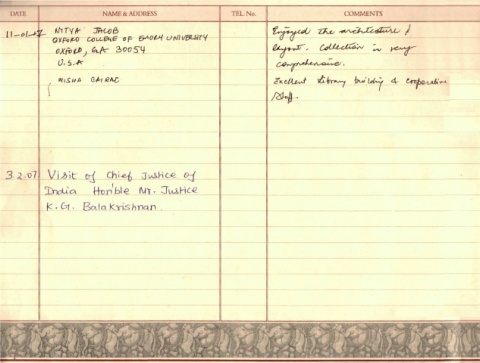 DATE NAME & ADDRESS TEL. No. COMMENTS
11-01-07 NITYA JACOB
OXFORD COLLEGE OF EMORY UNIVERSITY
OXFORD, GA 30054
U.S.A
Enjoyed the architecture &
layout. Collection is very
comprehensive.
NISHA
Excellent library building & cooperative
staff.
3.2.07 Visit of Chief Justice of
India Hon'ble Mr. Justice
K.G. Balakrishnan.